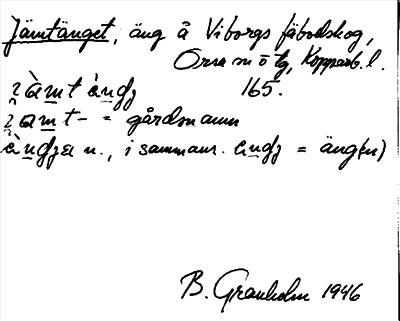 Jämtänget, äng å Viborgs fäbodskog,
Orsa m ö tg, Kopparb. l.
165.
= gårdsnamn
n., i sammans. = äng(en)
B. Granholm 1946